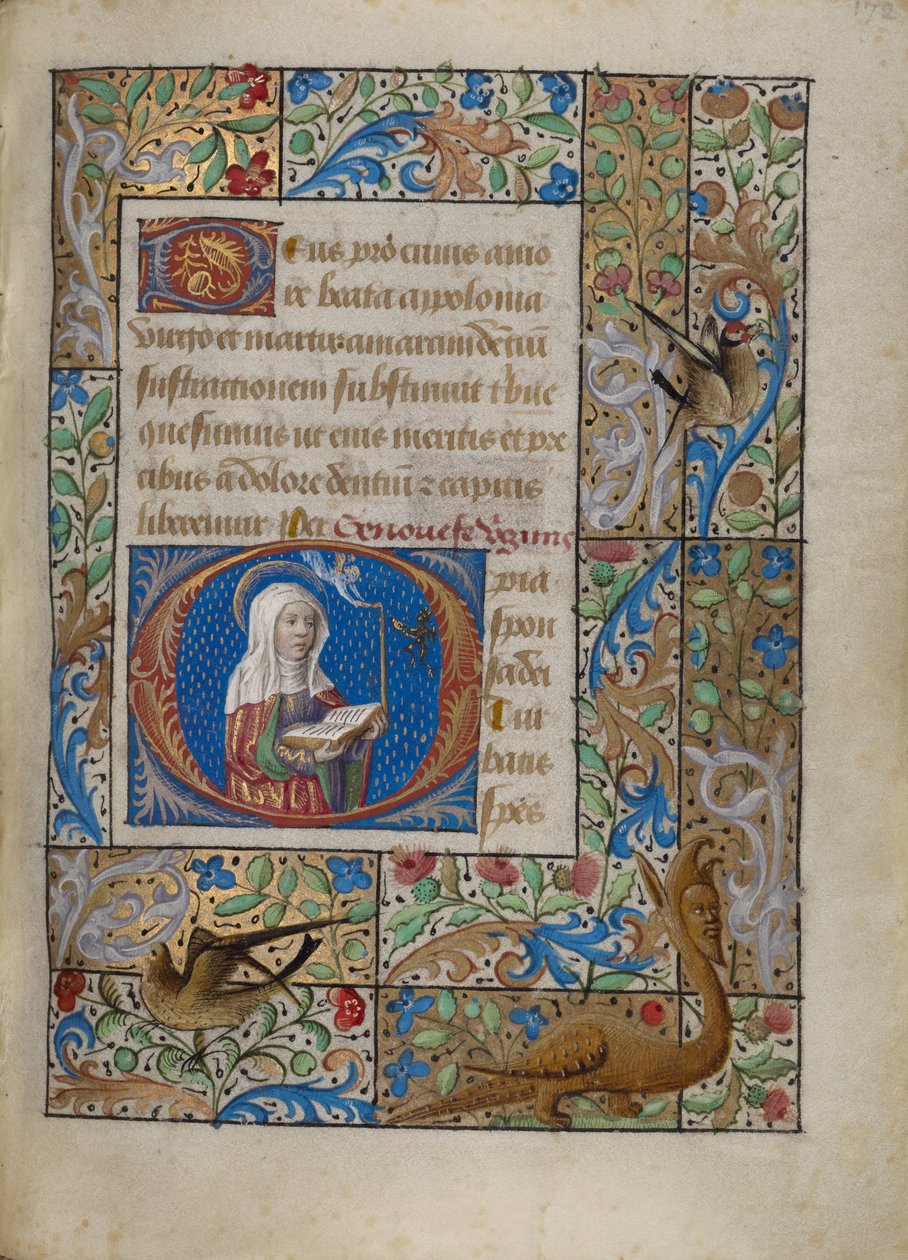 172
Deus pro cuius amo
re beata appolonia
virgo et martir amaram dentiū
sustractionem substinuit tribue
quesumus ut eius meritis et pre
cibus a dolore dentiū ⁊ capitis
liberemur Per Genovefe Virginis
O pia
spon
sa dei
Cui
batie
spes